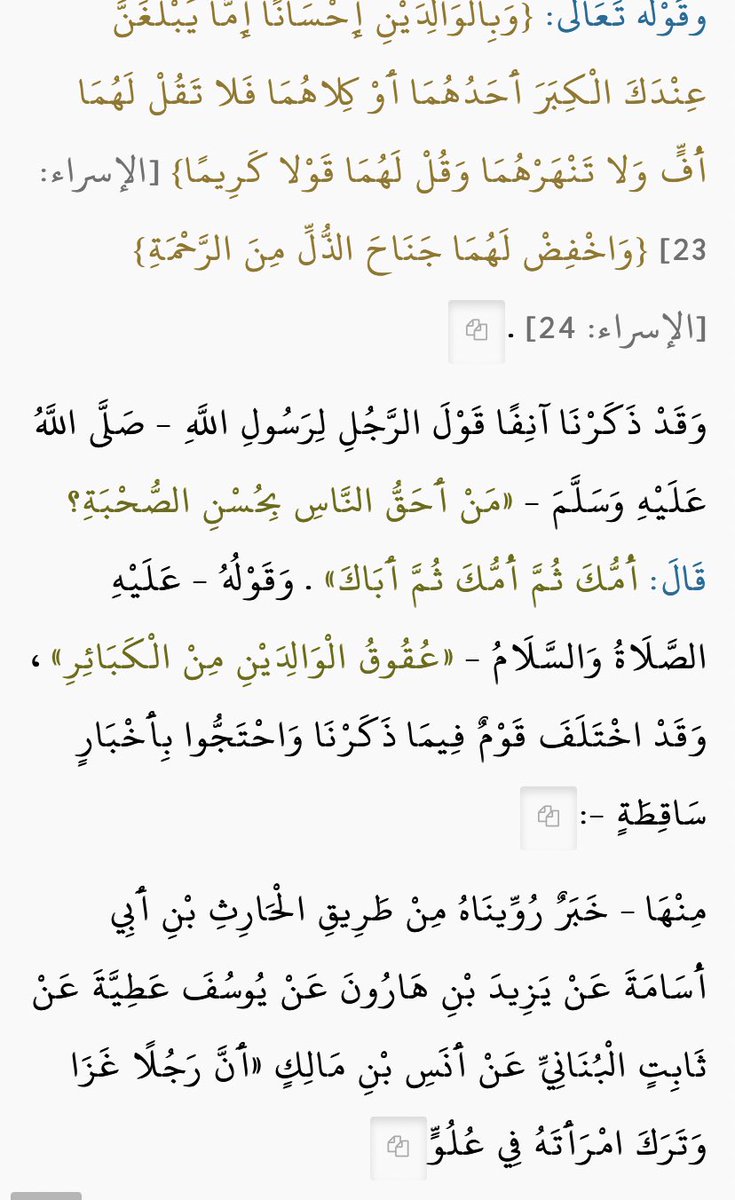 وَقَوْلُهُ تَعَالَى: {وَبِالْوَالِدَيْنِ إِحْسَانًا إِمَّا يَبْلُغَنَّ
عِنْدَكَ الْكِبَرَ أَحَدُهُمَا أَوْ كِلاهُمَا فَلا تَقُلْ لَهُمَا
أُفٍّ وَلا تَنْهَرْهُمَا وَقُلْ لَهُمَا قَوْلا كَرِيمًا} [الإسراء:
23] {وَاخْفِضْ لَهُمَا جَنَاحَ الذُّلِّ مِنَ الرَّحْمَةِ}
[الإسراء: 24] .
وَقَدْ ذَكَرْنَا آنِفًا قَوْلَ الرَّجُلِ لِرَسُولِ اللَّهِ - صَلَّى اللَّهُ
عَلَيْهِ وَسَلَّمَ - «مَنْ أَحَقُّ النَّاسِ بِحُسْنِ الصُّحْبَةِ؟
قَالَ: أُمُّكَ ثُمَّ أُمُّكَ ثُمَّ أَبَاكَ» . وَقَوْلُهُ - عَلَيْهِ
الصَّلَاةُ وَالسَّلَامُ - «عُقُوقُ الْوَالِدَيْنِ مِنْ الْكَبَائِرِ» ،
وَقَدْ اخْتَلَفَ قَوْمٌ فِيمَا ذَكَرْنَا وَاحْتَجُّوا بِأَخْبَارٍ
سَاقِطَةٍ -:
مِنْهَا - خَبَرٌ رُوِّينَاهُ مِنْ طَرِيقِ الْحَارِثِ بْنِ أَبِي
أُسَامَةَ عَنْ يَزِيدَ بْنِ هَارُونَ عَنْ يُوسُفَ عَطِيَّةَ عَنْ
ثَابِتٍ الْبُنَانِيِّ عَنْ أَنَسِ بْنِ مَالِكٍ «أَنَّ رَجُلًا غَزَا
وَتَرَكَ امْرَأَتَهُ فِي عُلُوٍّ